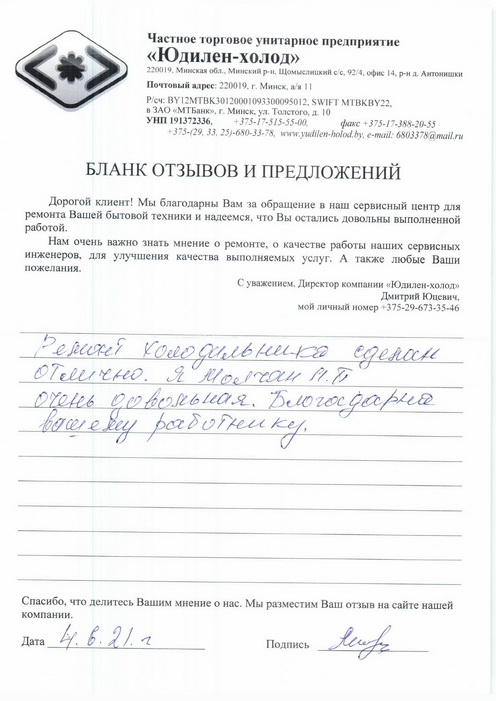 Частное торговое унитарное предприятие
«Юдилен-холод»
220019, Минская обл., Минский р-н, Щомыслицкий с/с, 92/4, офис 14, р-н д. Антонишки
Почтовый адрес: 220019, г. Минск, а/я 11
Р/сч: BY12MTBK30120001093300095012, SWIFT MTBKBY22,
в ЗАО «МТБанк», г. Минск, ул. Толстого, д. 10
УНП 191372336, +375-17-515-55-00, факс +375-17-388-20-55
+375-(29, 33, 25)-680-33-78, www.yudilen-holod.by, e-mail: 6803378@mail.ru
БЛАНК ОТЗЫВОВ И ПРЕДЛОЖЕНИЙ
Дорогой клиент! Мы благодарны Вам за обращение в наш сервисный центр для
ремонта Вашей бытовой техники и надеемся, что Вы остались довольны выполненной
работой.
Нам очень важно знать мнение о ремонте, о качестве работы наших сервисных
инженеров, для улучшения качества выполняемых услуг. А также любые Ваши
пожелания.
С уважением, Директор компании «Юдилен-холод»
Дмитрий Юцевич,
мой личный номер +375-29-673-35-46
Ремонт холодильника сделан
отлично. Я Молчан
очень довольная. Благодарна
вашему работнику.
Спасибо, что делитесь Вашим мнение о нас. Мы разместим Ваш отзыв на сайте нашей
компании.
Дата 4.6.21.г Подпись